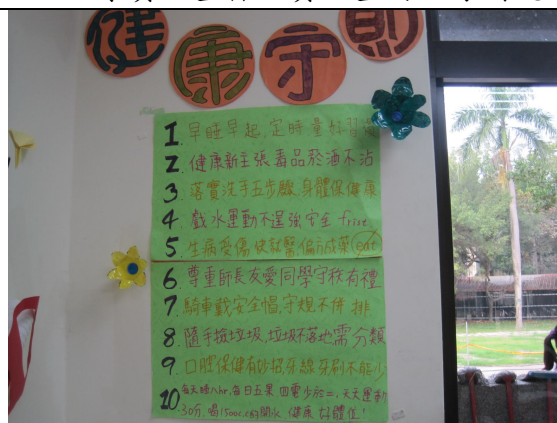 健康守則
1 早睡早起,定時量好習慣
2. 健康新主張毒品菸酒不沾
3. 落實洗手五步驟,身體保健康
4. 戲水運動不逞強安全 frist
5. 生病受傷快就醫,偏方成藥 out
6. 尊重師長友愛同學守秩有禮
7. 騎車戴安全帽,守規不併排
8. 隨手撿垃圾,垃圾不落地需分類
9. 口腔保健有妙招,牙線牙刷不能少
10 每天睡八hr,每日五果 四電少於二,天天運動
30分,喝1500c.c的開水 健康好體位!